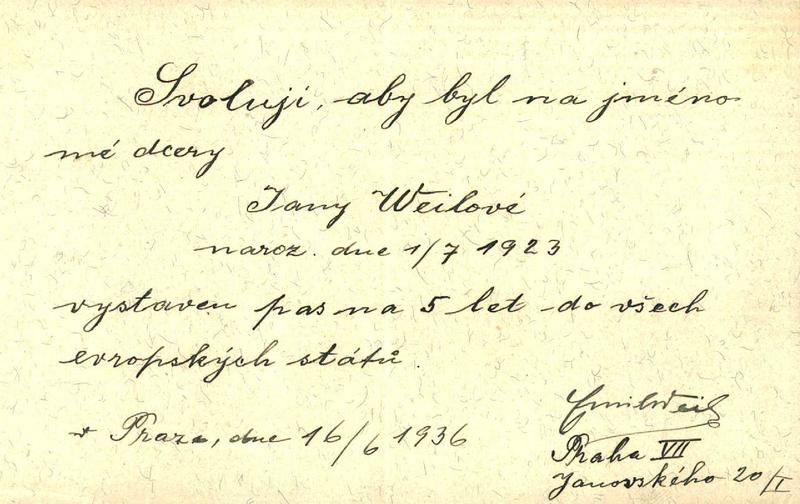 Svoluji, aby byl na jméno
mé dcery
Jany Weilové
naroz. dne 1/7 1923
vystaven pas na 5 let do všech
evropských států.
v Praze, dne 16/6 1936
Emil Weil
Praha VII
Janovského 20/I